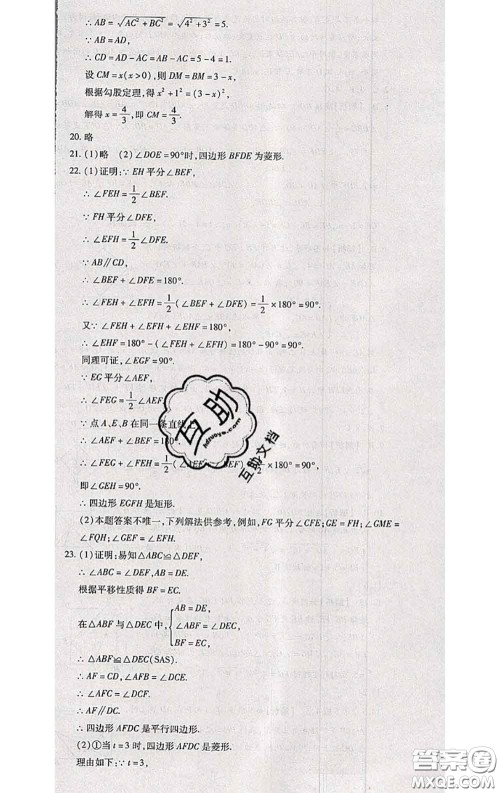 ∴ AB = √(AC² + BC²) = √(4² + 3²) = 5.
∵ AB = AD,
∴ CD = AD - AC = AB - AC = 5 - 4 = 1.
设 CM = x(x > 0),则 DM = BM = 3 - x,
根据勾股定理,得 x² + 1² = (3 - x)²,
解得 x = 4/3,即 CM = 4/3.
20. 略
21. (1)略 (2)∠DOE = 90°时,四边形 BFDE 为菱形.
22. (1)证明:∵ EH 平分∠BEF,
∴ ∠FEH = 1/2 ∠BEF.
∵ FH 平分∠DFE,
∴ ∠EFH = 1/2 ∠DFE.
∵ AB∥CD,
∴ ∠BEF + ∠DFE = 180°.
∴ ∠FEH + ∠EFH = 1/2 (∠BEF + ∠DFE) = 1/2 × 180° = 90°.
又∵ ∠FEH + ∠EFH + ∠EHF = 180°,
∴ ∠EHF = 180° - (∠FEH + ∠EFH) = 180° - 90° = 90°.
同理可证,∠EGF = 90°.
∵ EG 平分∠AEF,
∴ ∠FEG = 1/2 ∠AEF.
∵ 点 A、E、B 在同一条直线上
∴ ∠AEF + ∠BEF = 180°.
∴ ∠FEG + ∠FEH = 1/2 (∠AEF + ∠BEF) = 1/2 × 180° = 90°,
即∠GEH = 90°.
∴ 四边形 EGFH 是矩形.
(2)本题答案不唯一,下列解法供参考,例如,FG 平分∠CFE;GE = FH;∠GME =
∠FQH;∠GEF = ∠EFH.
23. (1)证明:易知△ABC≌△DEF,
∴ ∠ABC = ∠DEF,AB = DE.
根据平移性质得 BF = EC.
在△ABF 与△DEC 中,{AB = DE,
∠ABF = ∠DEC,
BF = EC,
∴ △ABF≌△DEC(SAS).
∴ AF = CD,∠AFB = ∠DCE.
∴ ∠AFC = ∠DCF.
∴ AF∥DC.
∴ 四边形 AFDC 是平行四边形.
(2)①当 t = 3 时,四边形 AFDC 是菱形.
理由如下:∵ t = 3,
互助
hdzuoye.com
互助文档
答案圈
MXQE.COM